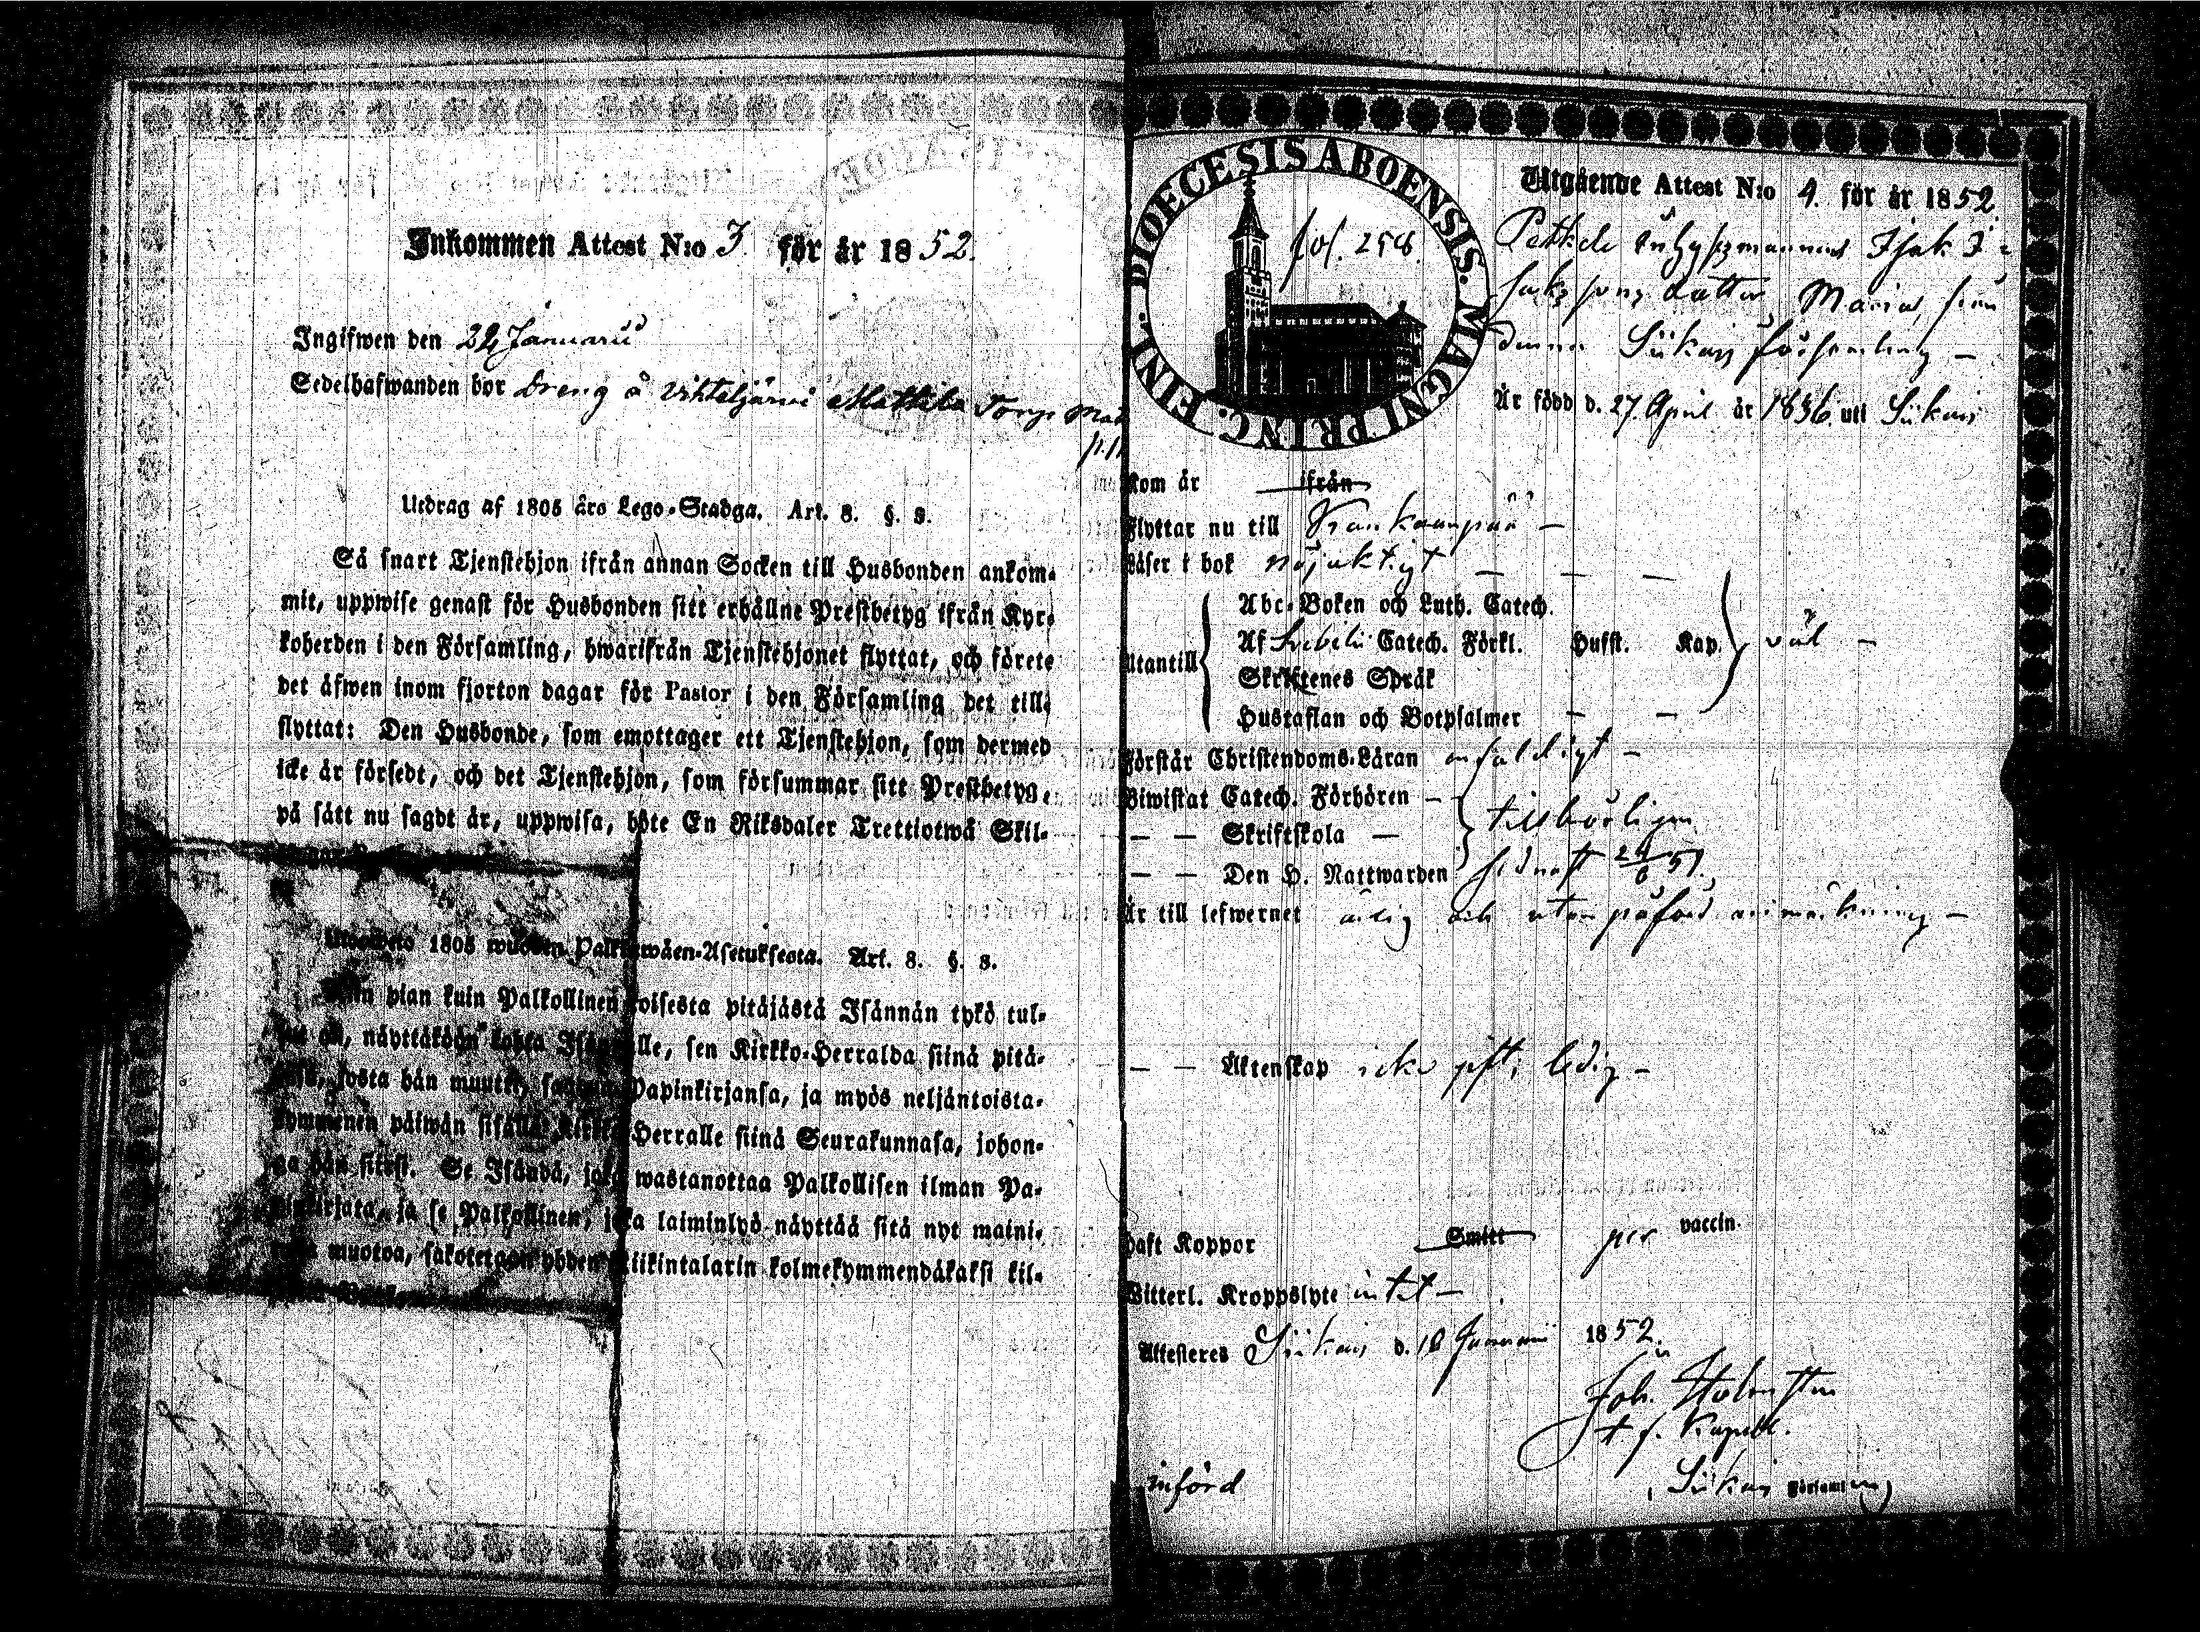 Inkommen Attest N:o 3 för år 1852.
Ingifwen den 22 Januarii
Sedelhafwanden bor Dreng å Vihteljärvi Mattila Torp
Utdrag af 1805 års Lego-Stadga. Art. 8. §. 8.
Så snart Tjenstehjon ifrån annan Socken till Husbonden ankom-
mit, uppwise genast för Husbonden sitt erhållne Prestbetyg ifrån Kyr-
koherden i den Församling, hwarifrån Tjenstehjonet flyttat, och förete
det åfwen inom fjorton dagar för Pastor i den Församling det till-
flyttat: Den Husbonde, som emottager ett Tjenstehjon, som dermed
icke år försedt, och det Tjenstehjon, som försummar sitt Prestbetyg,
på sått nu sagdt år, uppwisa, bôte En Riksdaler Trettiotwå Skil-
1805 wuoden Palkkawäen-Asetuksesta. Art. 8. §. 8.
pian kuin Palkollinen toisesta pitäjästä Isännän tykö tul-
on, näyttäköön kohta Isännälle, sen Kirkko-Herralda siinä pitä-
josta hän muutti, Papinkirjansa, ja myös neljäntoista-
kymmenen päiwän sisällä Kirkko-Herralle siinä Seurakunnasa, johon-
ga hän siirsi. Se Isändä, joka wastanottaa Palkollisen ilman Pa-
pinkirjata, ja se Palkollinen, joka laiminlyö näyttää sitä nyt maini-
muotoa, sakotetaan yhden Riikintalarin kolmekymmendäkaksi kil-
DIOECESIS ABOENSIS. MAGNI PRINC. FINL.
fol. 258.
Utgående Attest N:o 4. för år 1852.
Inhyssmannen Isak I-
saksons dotter Maria, från
denna Siikais församling –
År född d. 27. April år 1836. uti Siikais
Kom år ifrån
Flyttar nu till Kankaanpää –
Läser i bok nöjaktigt – – –
Utantill
Abc-Boken och Luth. Catech.
Af Svebilii Catech. Förkl. Husst. Kap. väl –
Skriftenes Språk
Hustaflan och Botpsalmer – –
Förstår Christendoms-Läran enfaldigt –
Biwistat Catech. Förhören –
– – Skriftskola – tillbörligen
– – Den H. Nattwarden sednast 24/6 51.
År till lefwernet ärlig och utan påförd anmärkning –
– – Äktenskap icke gift, ledig –
Haft Koppor Smitt per vaccin.
Witterl. Kroppslyte intet –
Attesteres Siikais d. 18 Januarii 1852.
Joh. Holmsten
t. f. Kapell.
i Siikais Församling
införd